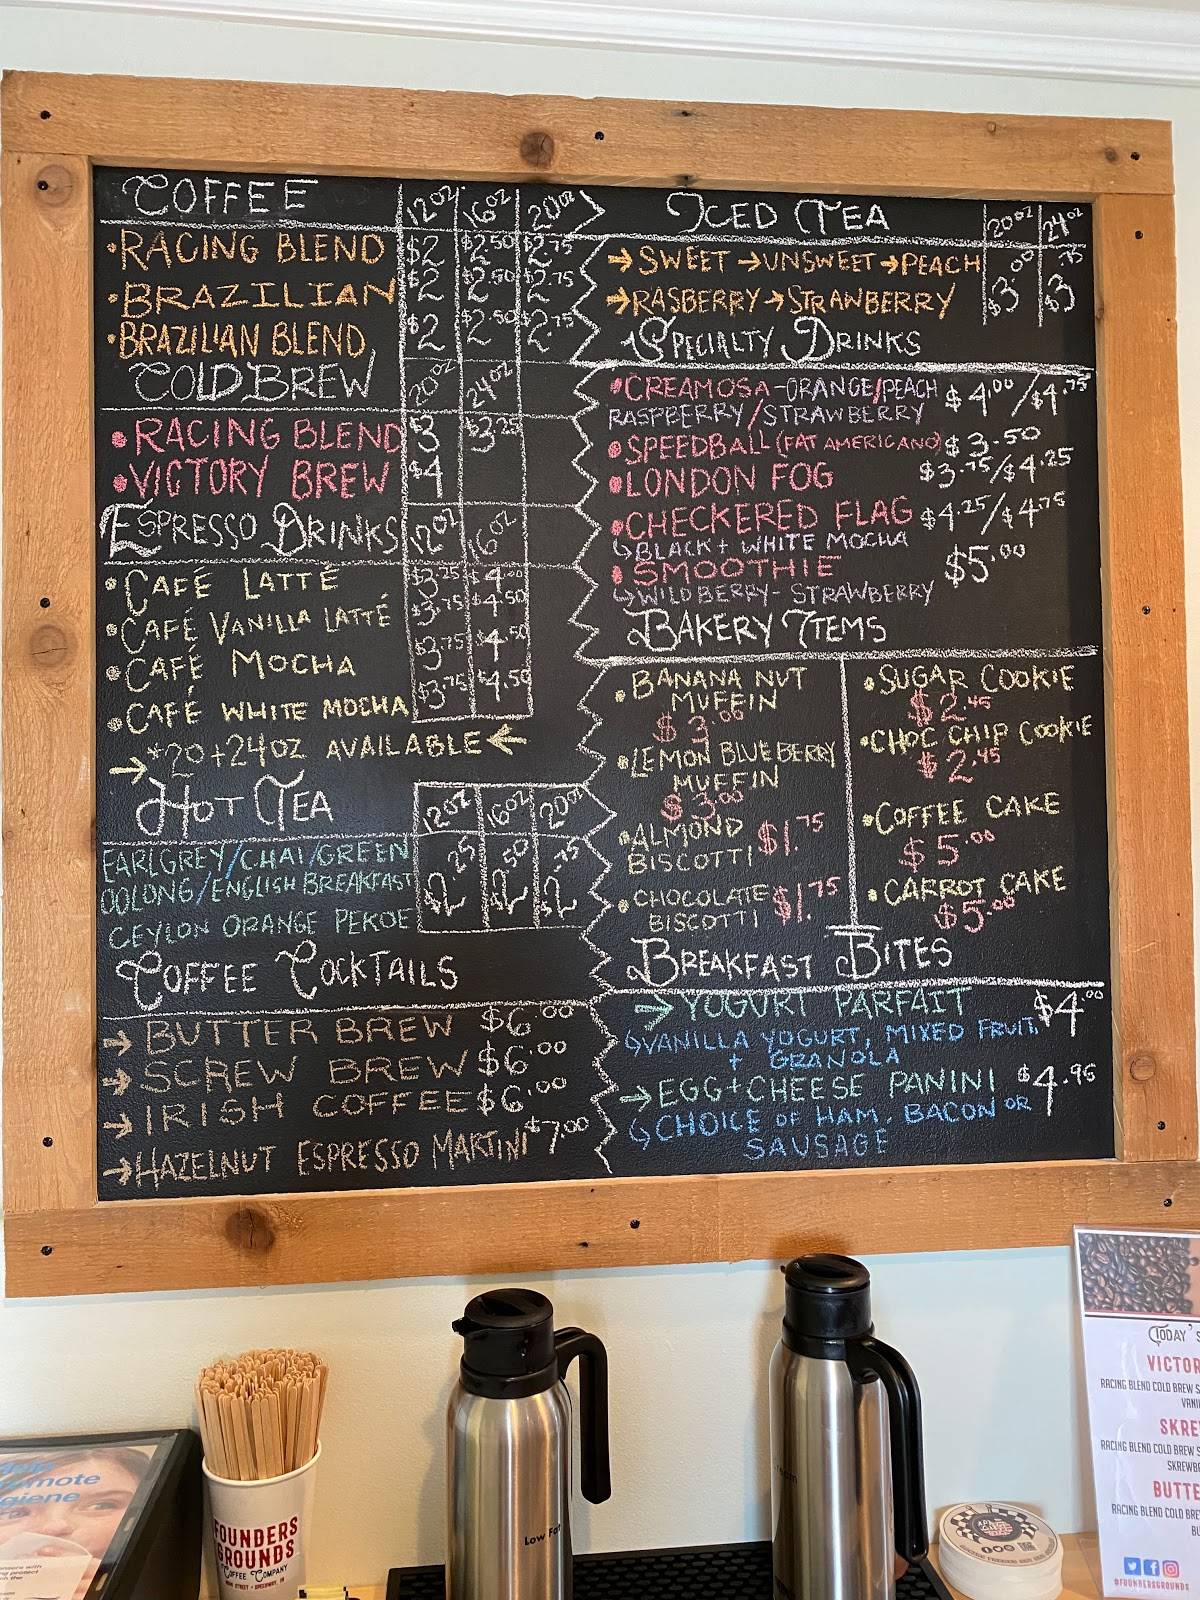 COFFEE 12OZ 16OZ 20OZ
•RACING BLEND $2 $2.50 $2.75
•BRAZILIAN $2 $2.50 $2.75
•BRAZILIAN BLEND $2 $2.50 $2.75
COLD BREW 20OZ 24OZ
•RACING BLEND $3 $3.25
•VICTORY BREW $4
ESPRESSO DRINKS 12OZ 16OZ
•CAFÉ LATTÉ $3.25 $4.00
•CAFÉ VANILLA LATTÉ $3.75 $4.50
•CAFÉ MOCHA $3.75 $4.50
•CAFÉ WHITE MOCHA $3.75 $4.50
→*20+24OZ AVAILABLE←
HOT TEA 12OZ 16OZ 20OZ
EARLGREY/CHAI/GREEN
OOLONG/ENGLISH BREAKFAST
CEYLON ORANGE PEKOE
$2.25 $2.50 $2.75
COFFEE COCKTAILS
→BUTTER BREW $6.00
→SCREW BREW $6.00
→IRISH COFFEE $6.00
→HAZELNUT ESPRESSO MARTINI $7.00
ICED TEA 20OZ 24OZ
→SWEET →UNSWEET →PEACH
→RASBERRY→STRAWBERRY
$3.00 $3.75
SPECIALTY DRINKS
•CREAMOSA-ORANGE/PEACH $4.00/$4.75
RASPBERRY/STRAWBERRY
•SPEEDBALL (FAT AMERICANO) $3.50
•LONDON FOG $3.75/$4.25
•CHECKERED FLAG $4.25/$4.75
↳BLACK+ WHITE MOCHA
•SMOOTHIE $5.00
↳WILDBERRY- STRAWBERRY
BAKERY ITEMS
•BANANA NUT
MUFFIN
$3.00
•LEMON BLUEBERRY
MUFFIN
$3.00
•ALMOND
BISCOTTI $1.75
•CHOCOLATE
BISCOTTI $1.75
•SUGAR COOKIE
$2.45
•CHOC CHIP COOKIE
$2.45
•COFFEE CAKE
$5.00
•CARROT CAKE
$5.00
BREAKFAST BITES
→YOGURT PARFAIT $4.00
↳VANILLA YOGURT, MIXED FRUIT,
+ GRANOLA
→EGG+CHEESE PANINI $4.95
↳CHOICE OF HAM, BACON OR
SAUSAGE
FOUNDERS
GROUNDS
COFFEE COMPANY
Low Fat
TODAY'S
VICTOR
RACING BLEND COLD BREW S
VANI
SKRE
RACING BLEND COLD BREW S
SKREWB
BUTTE
RACING BLEND COLD BRE
BU
#FOUNDERSGROUNDS